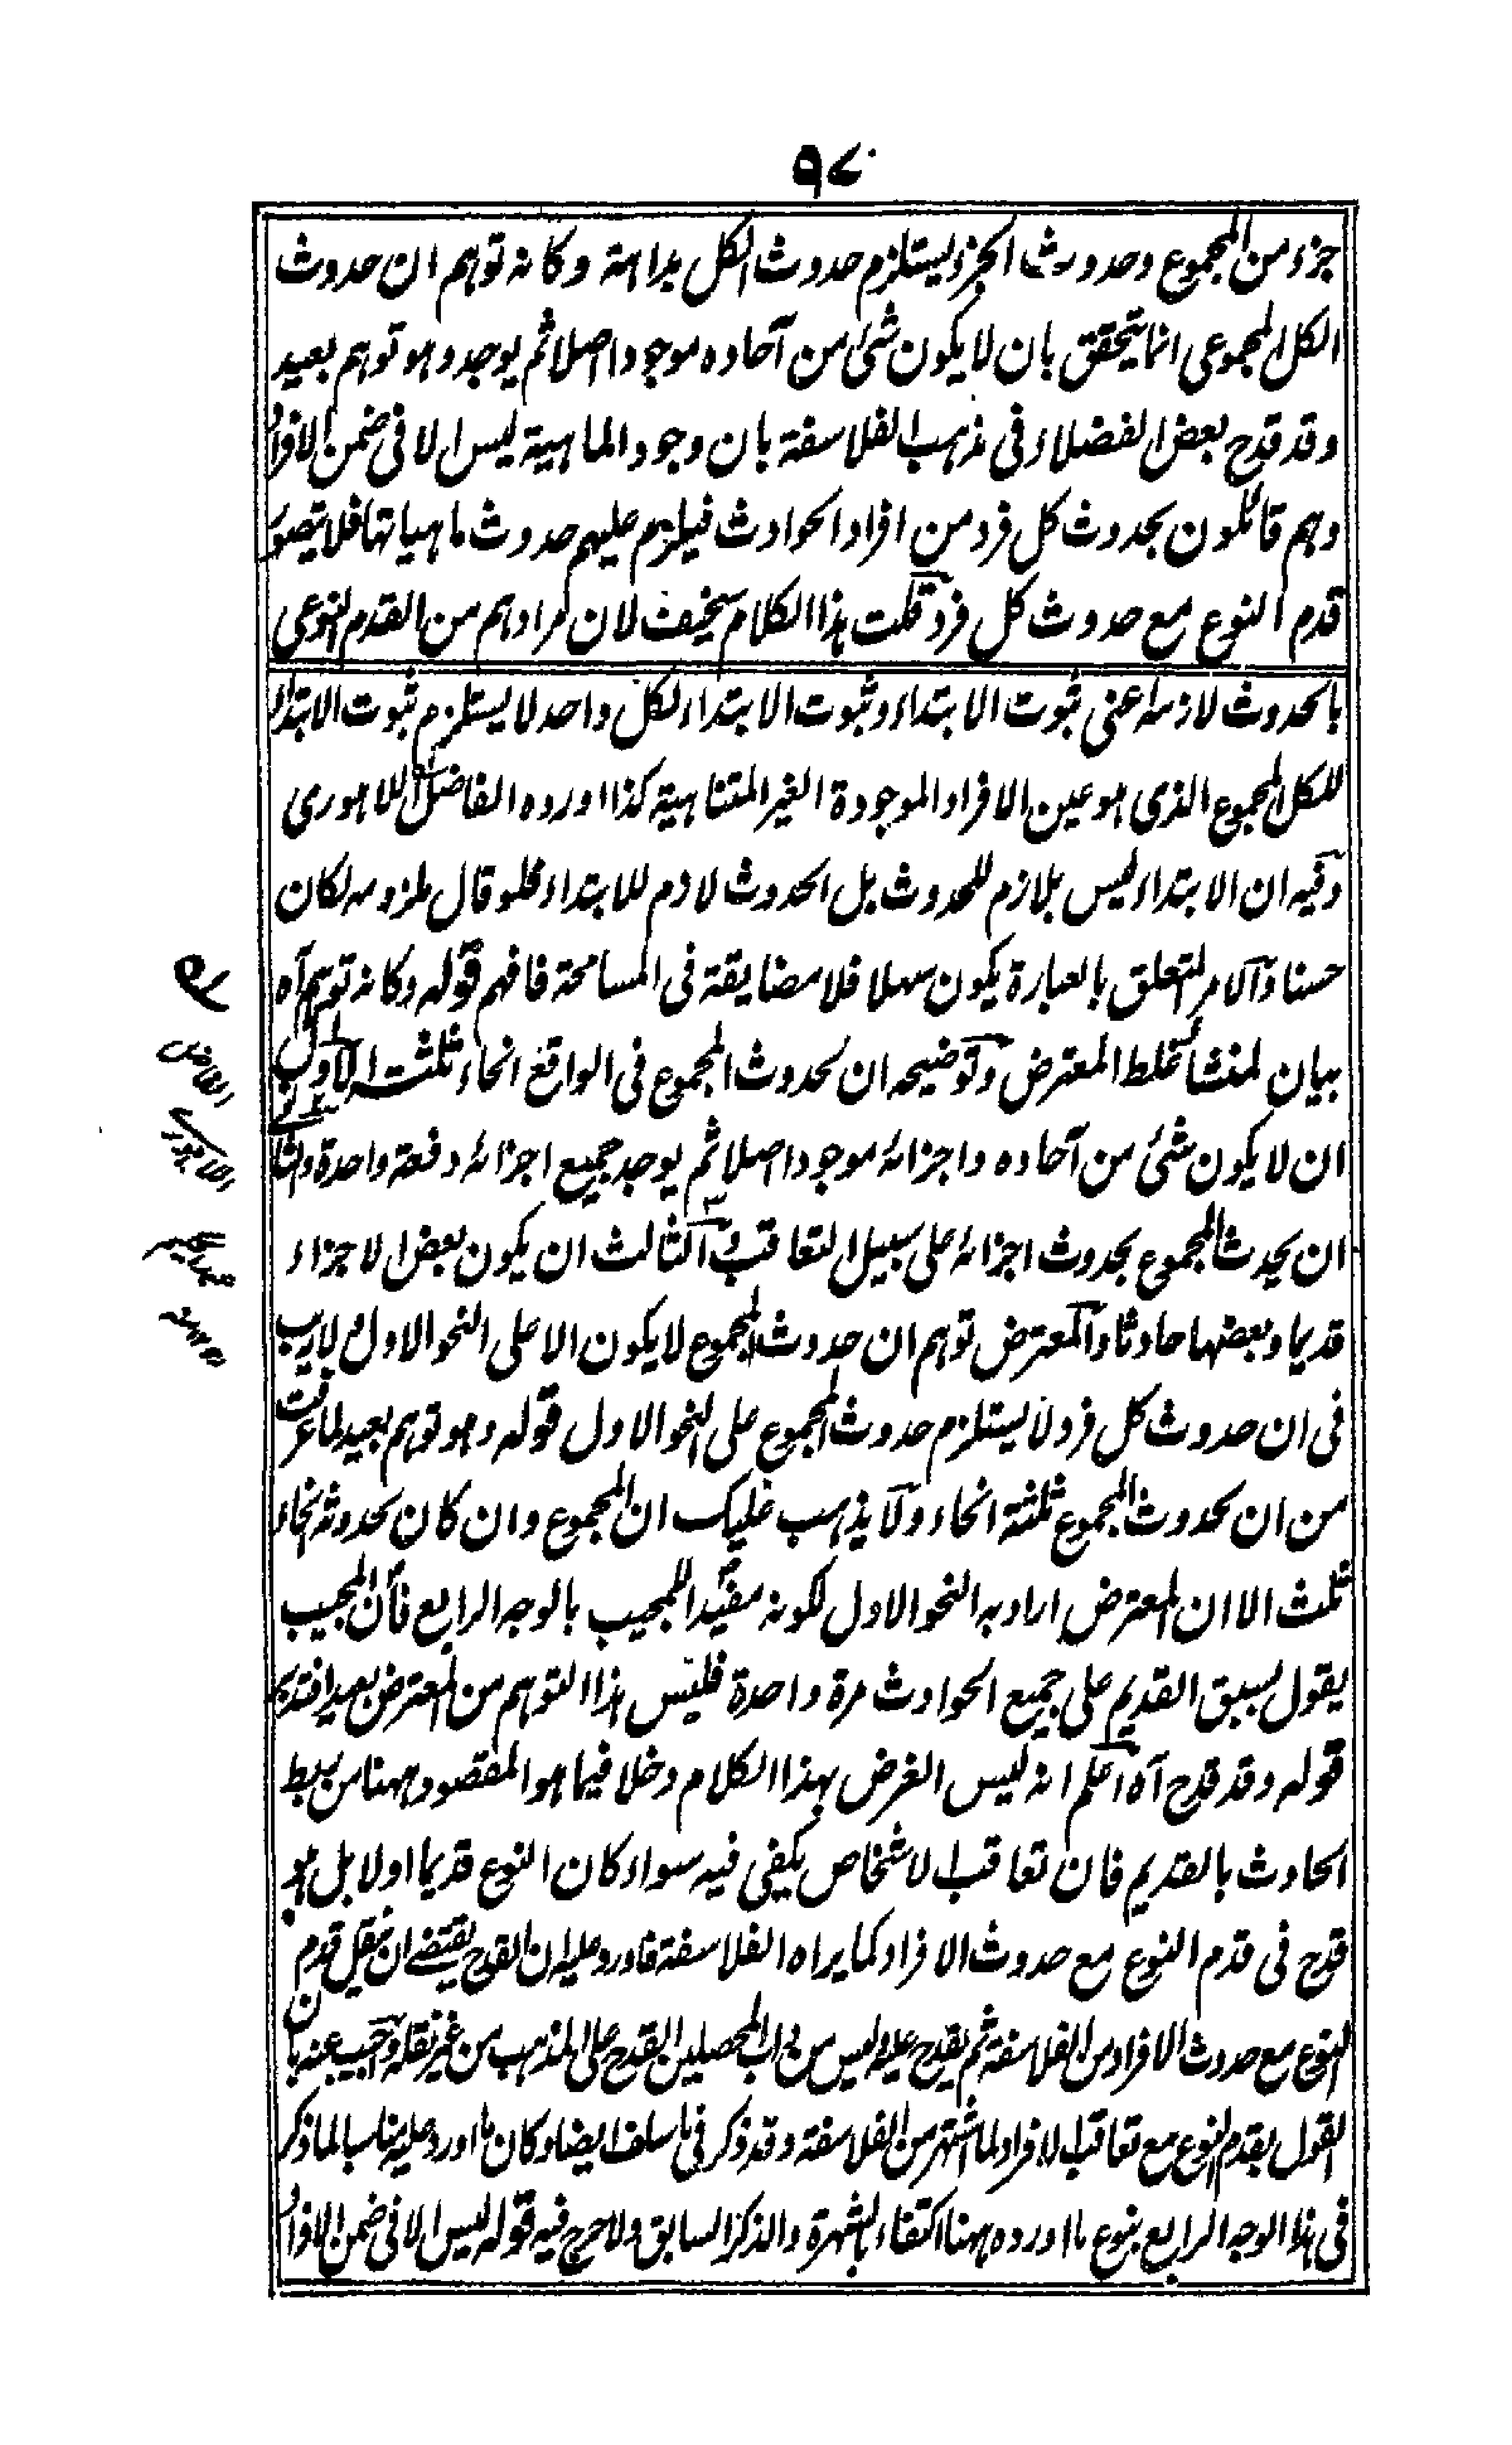 ٩٧
جزء من المجموع وحدوث الجزء يستلزم حدوث الكل بداهة وكانه توهم ان حدوث
الكل المجموعى انما يتحقق بان لا يكون شئ من آحاده موجودا اصلا ثم يوجد وهو توهم بعيد
وقد قدح بعض الفضلاء فى مذهب الفلاسفة بان وجود الماهية ليس الا فى ضمن الافراد
وهم قائلون بحدوث كل فرد من افراد الحوادث فيلزم عليهم حدوث ماهياتها فلا يتصور
قدم النوع مع حدوث كل فرد قلت هذا الكلام سخيف لان مرادهم من القدم النوعى
بالحدوث لازمه اعنى ثبوت الابتداء وثبوت الابتداء لكل واحد لا يستلزم ثبوت الابتداء
للكل المجموع الذى هو عين الافراد الموجودة الغير المتناهية كذا اورده الفاضل اللاهورى
وفيه ان الابتداء ليس بلازم للحدوث بل الحدوث لازم للابتداء فلو قال ملزومه لكان
حسنا والامر المتعلق بالعبارة يكون سهلا فلا مضايقة فى المسامحة فافهم قوله وكانه توهم آه
بيان لمنشأ غلط المعترض وتوضيحه ان لحدوث المجموع فى الواقع انحاء ثلثة الاول
ان لا يكون شئ من آحاده واجزائه موجودا اصلا ثم يوجد جميع اجزائه دفعة واحدة والثانى
ان يحدث المجموع بحدوث اجزائه على سبيل التعاقب والثالث ان يكون بعض الاجزاء
قديما وبعضها حادثا والمعترض توهم ان حدوث المجموع لا يكون الا على النحو الاول ولا ريب
فى ان حدوث كل فرد لا يستلزم حدوث المجموع على النحو الاول قوله وهو توهم بعيد لما عرفت
من ان لحدوث المجموع ثلثة انحاء ولا يذهب عليك ان المجموع وان كان لحدوثه انحاء
ثلث الا ان المعترض اراد به النحو الاول لكونه مفيدا للمجيب بالوجه الرابع فان المجيب
يقول بسبق القديم على جميع الحوادث مرة واحدة فليس هذا التوهم من المعترض بعيدا فتدبر
قوله وقد قدح آه اعلم انه ليس الغرض بهذا الكلام دخلا فيما هو المقصود ههنا من ربط
الحادث بالقديم فان تعاقب الاشخاص يكفى فيه سواء كان النوع قديما اولا بل هو
قدح فى قدم النوع مع حدوث الافراد كما يراه الفلاسفة فاورد عليه ان القدح يقتضے ان ينقل قدم
النوع مع حدوث الافراد من الفلاسفة ثم يقدح عليه وليس من داب المحصلين القدح على المذهب من غير نقله واجيب عنه بان
القول بقدم النوع مع تعاقب الافراد لما اشتهر من الفلاسفة وقد ذكر فى ما سلف ايضا وكان ما اورد عليه مناسبا لما ذكر
فى هذا الوجه الرابع بنوع ما اورده ههنا اكتفاء بالشهرة والذكر السابق ولا حرج فيه قوله ليس الا فى ضمن الافراد
الفاضل
اللاهورى